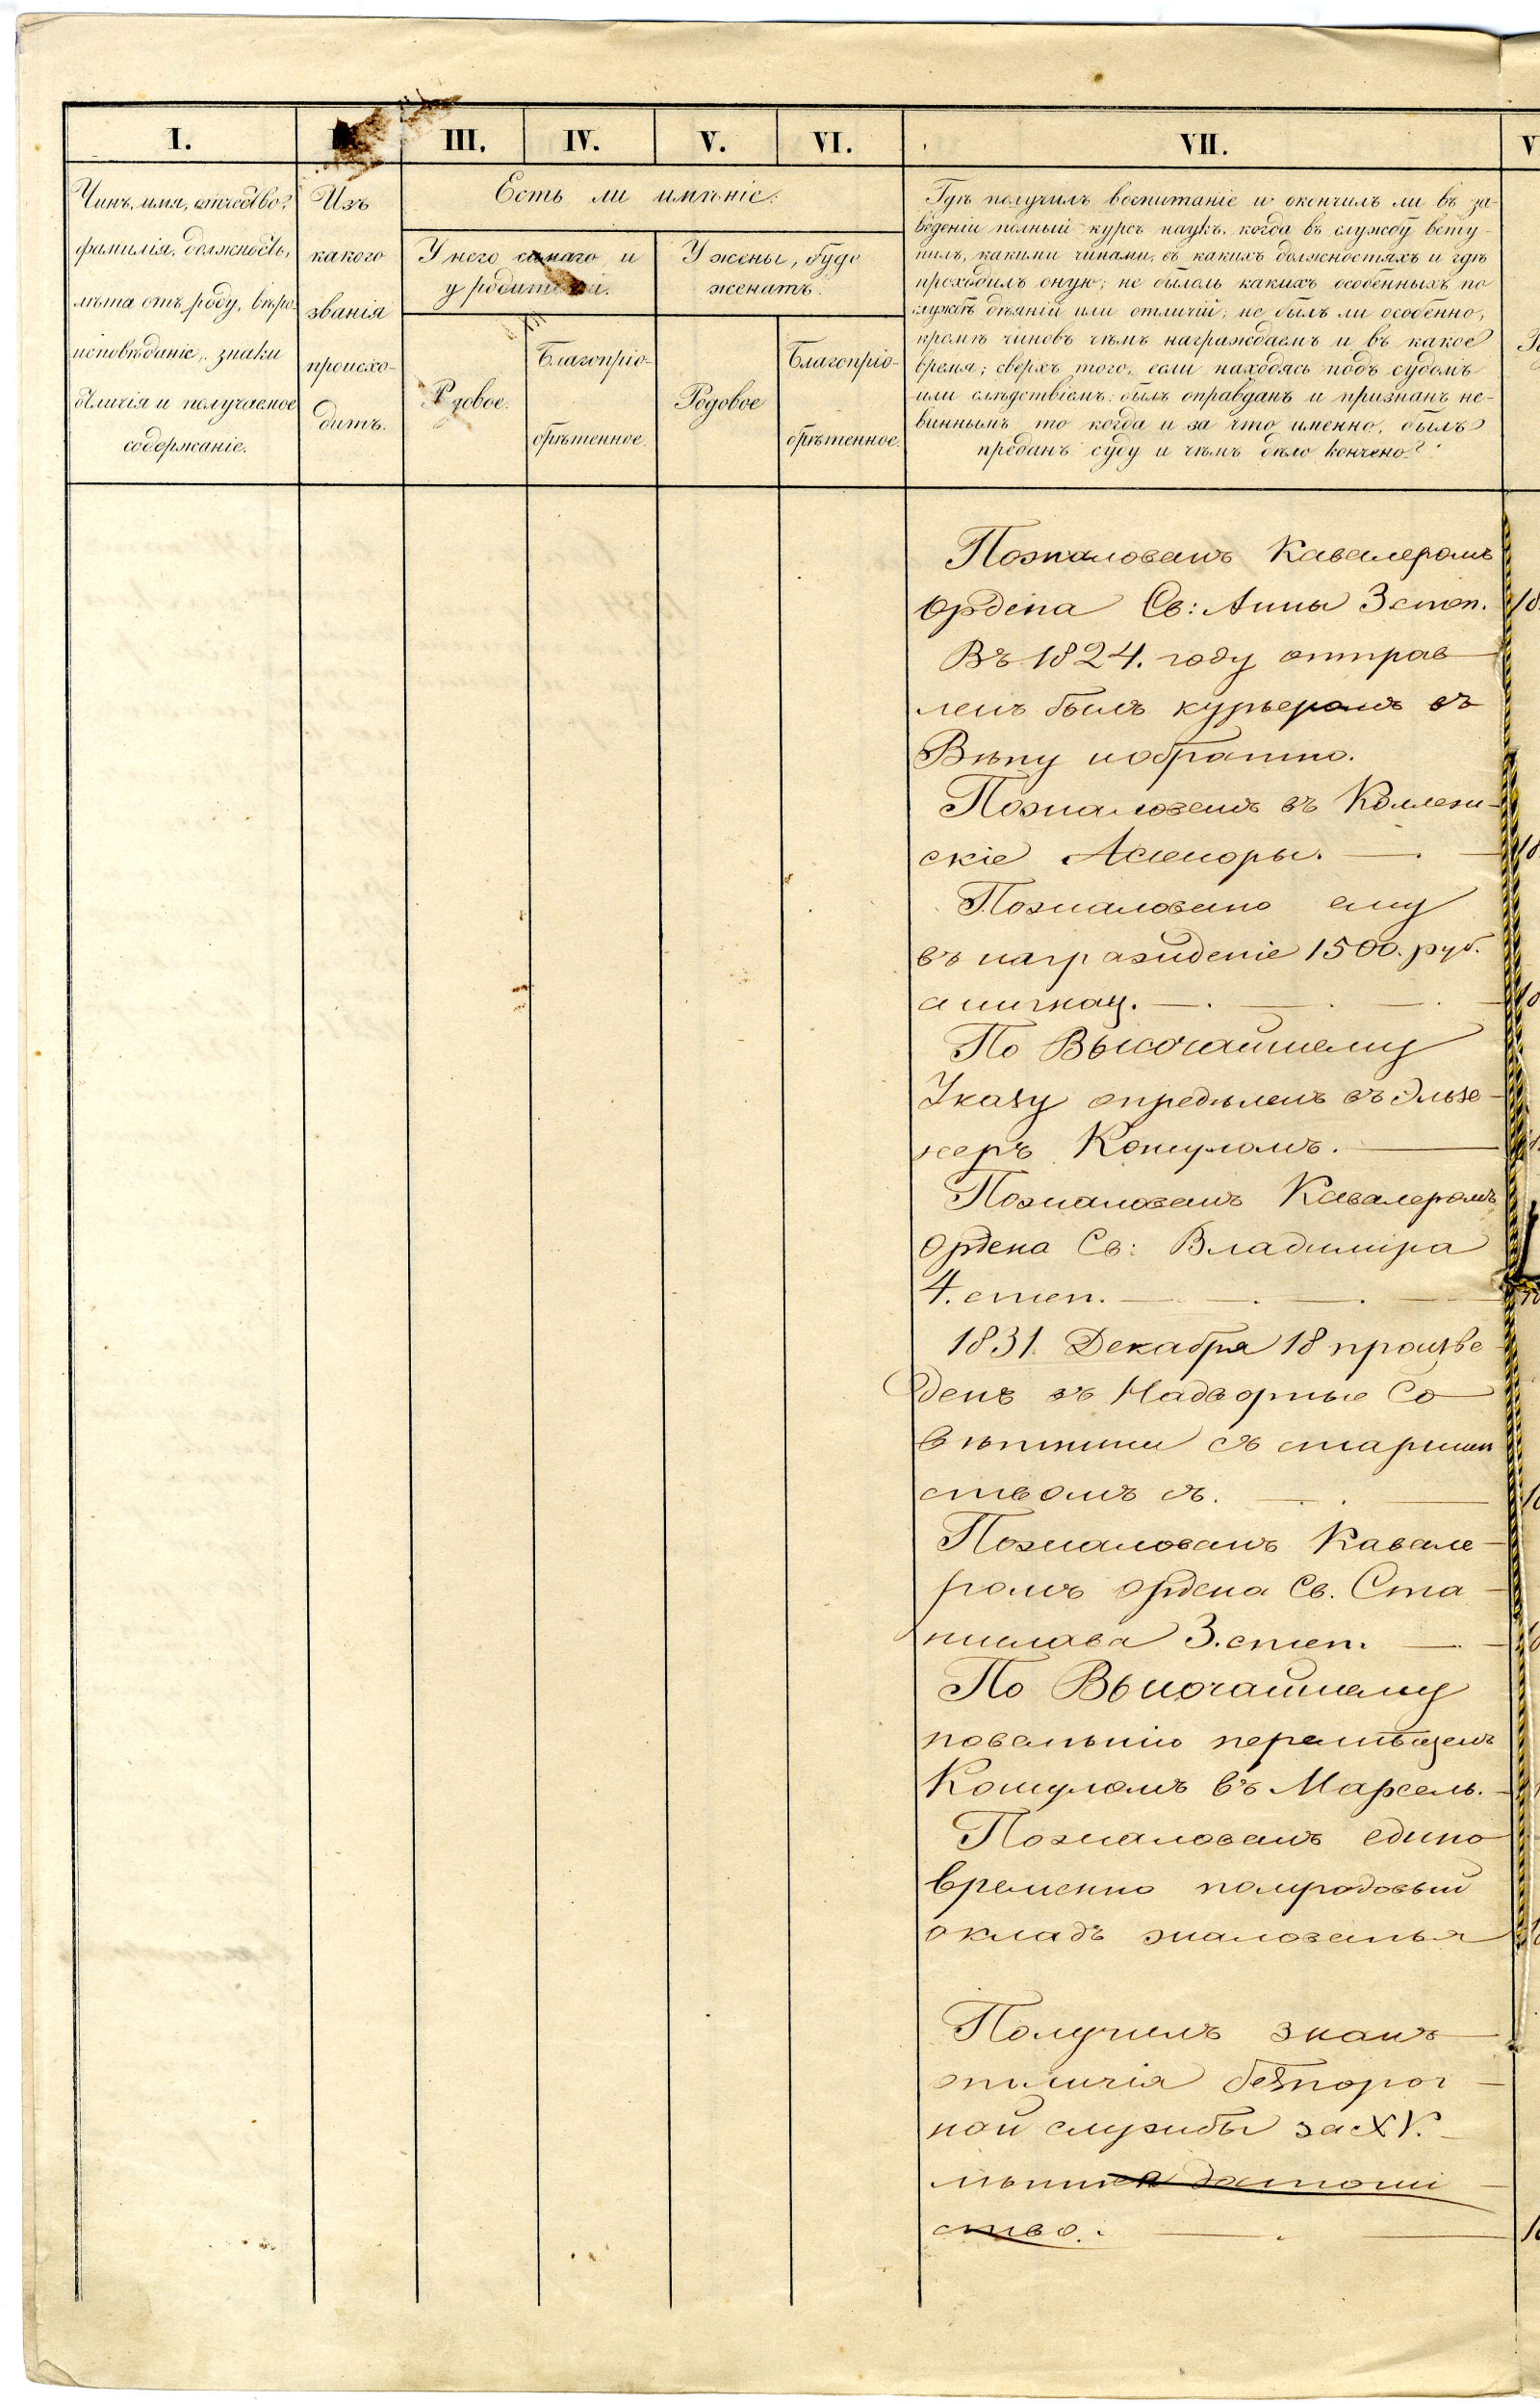 I.
III.
IV.
V.
VI.
VII.
Чинъ, имя, отчество,
фамилія, должность,
лѣта отъ роду, вѣро-
исповѣданіе, знаки
отличія и получаемое
содержаніе.
Изъ
какого
званія
происхо-
дитъ.
Есть ли имѣніе.
У него самаго и
у родителей.
У жены, буде
женатъ.
Родовое.
Благопріо-
брѣтенное.
Родовое
Благопріо-
брѣтенное.
Гдѣ получилъ воспитаніе и окончилъ ли въ за-
веденіи полный курсъ наукъ, когда въ службу всту-
пилъ, какими чинами, въ какихъ должностяхъ и гдѣ
проходилъ оную; не былоль какихъ особенныхъ по
службѣ дѣяній или отличій; не былъ ли особенно,
кромѣ чиновъ чѣмъ награждаемъ и въ какое
время; сверхъ того, если находясь подъ судомъ
или слѣдствіемъ, былъ оправданъ и признанъ не-
виннымъ то когда и за что именно, былъ
преданъ суду и чѣмъ дѣло кончено?
Пожалованъ Кавалеромъ
Ордена Св: Анны 3 степ.
Въ 1824. году отправ
ленъ былъ курьеромъ въ
Вѣну и обратно.
Пожалованъ въ Коллеж-
скіе Ассесоры.
Пожаловано ему
въ награжденіе 1500. руб.
ассигнац.
По Высочайшему
Указу опредѣленъ въ Эльзе-
неръ Консуломъ.
Пожалованъ Кавалеромъ
Ордена Св: Владиміра
4. степ.
1831. Декабря 18 произве
денъ въ Надворные Со
вѣтники съ старшин
ствомъ съ.
Пожалованъ Кавале-
ромъ ордена Св. Ста-
нислава 3. степ.
По Высочайшему
повелѣнію перемѣщенъ
Консуломъ въ Марсель.
Пожалованъ едино
временно полугодовый
окладъ жалованья
Получилъ знакъ
отличія безпороч-
ной службы за XV.
лѣтн
ство.